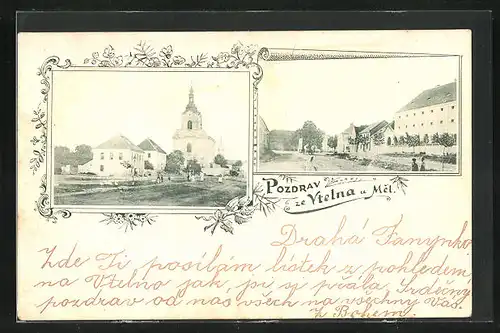 Pozdrav
ze Vtelna u Měl.
Drahá Fanynko
Zde Ti posílám lístek z pohledem
na Vtelno jak si přála. Srdečný
pozdrav od nás všech na všechny Vás.
Z Bohem.